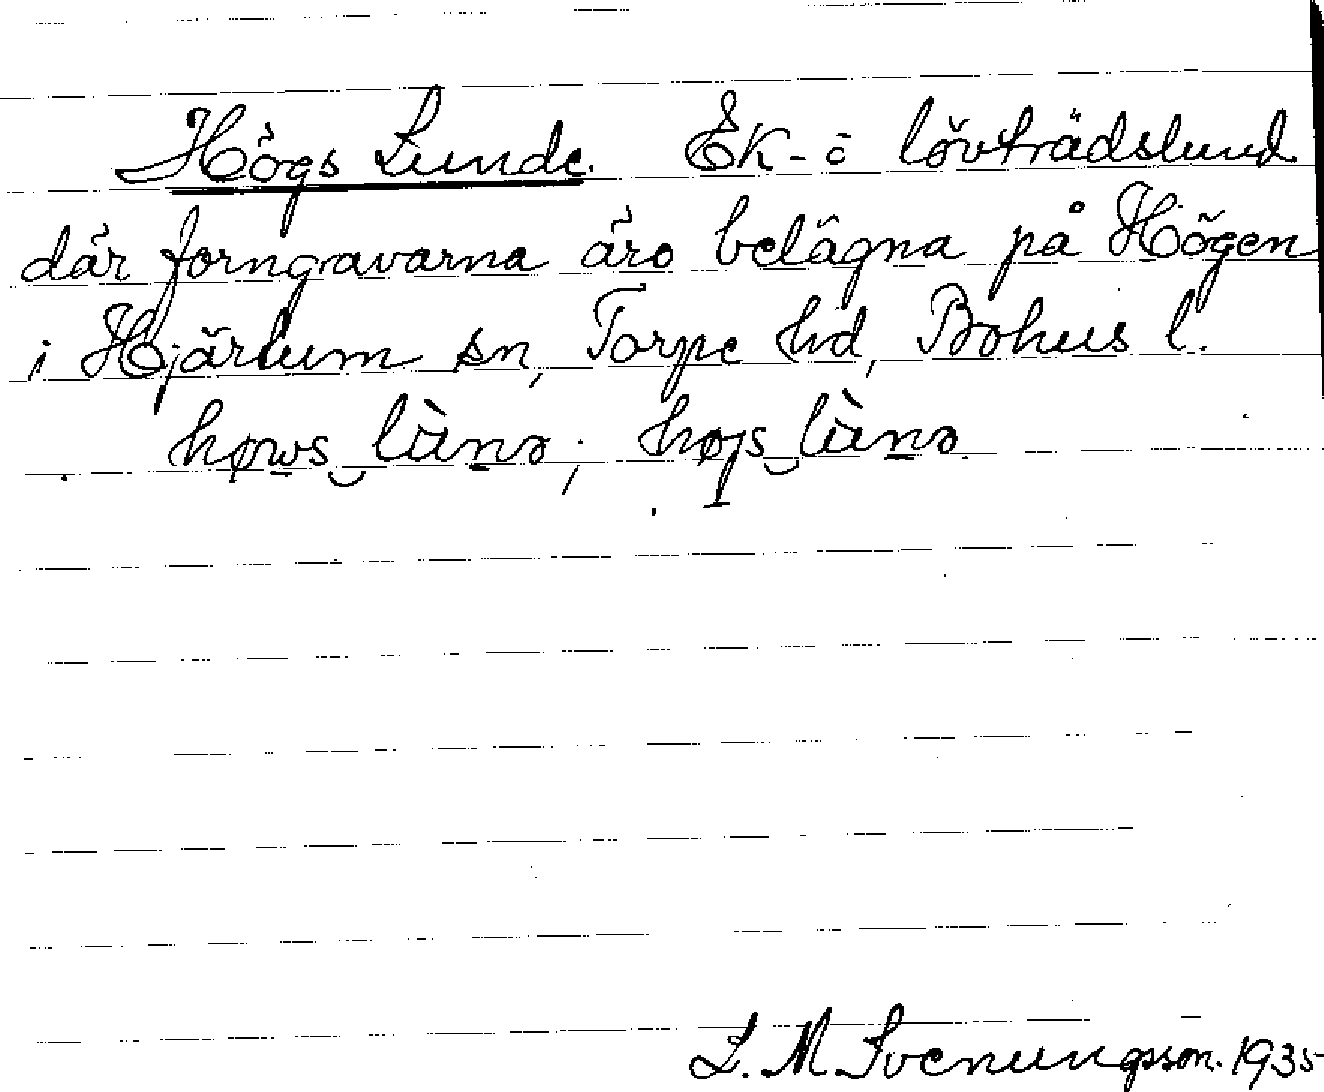 Högs Lunde. Ek- o lövträdslund
där forngravarna äro belägna på Högen
i Hjärtum sn, Torpe hd, Bohus l.
høws lùnə; højs lùnə
L. M. Svenungsson. 1935